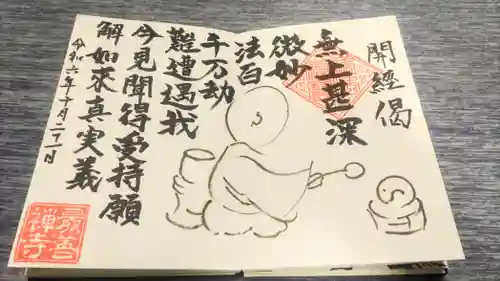 開經偈
無上甚深
微妙
法百
千万劫
難遭遇我
今見聞得受持願
解如来真実義
令和六年十月二十一日
禅寺